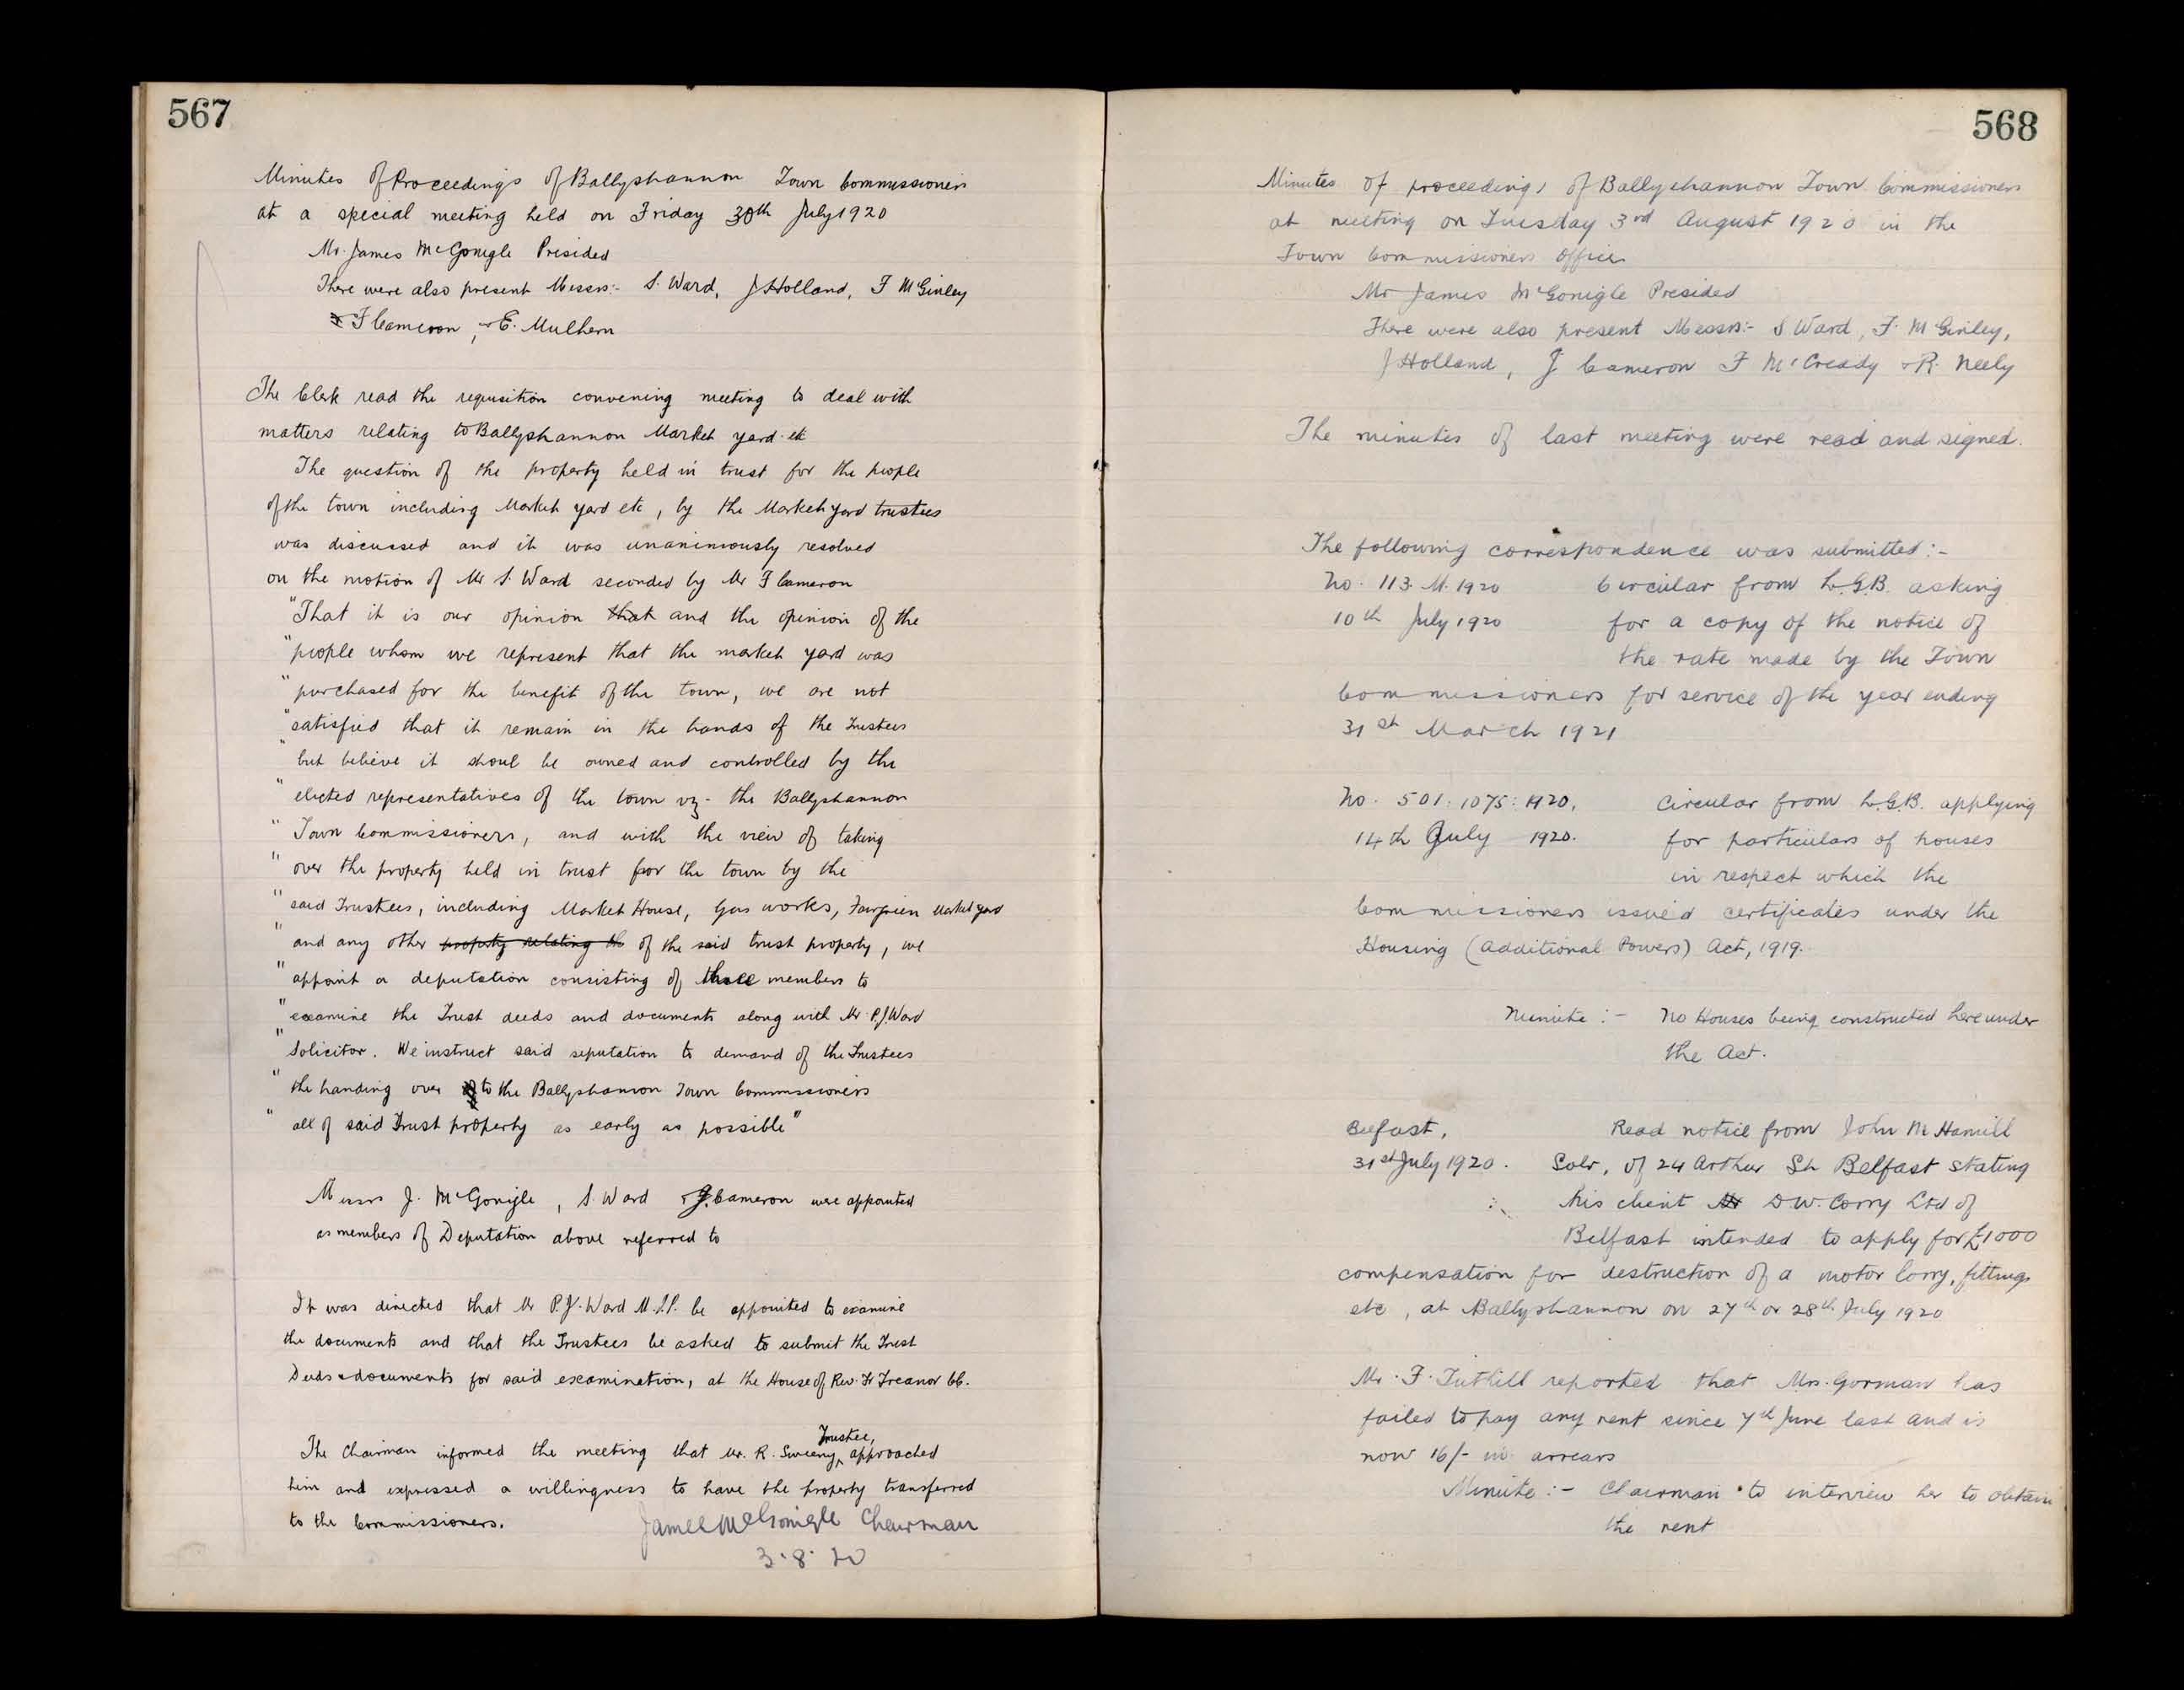 567
Minutes of Proceedings of Ballyshannon Town Commissioners
at a special meeting held on Friday 30th July 1920
Mr. James McGonigle Presided
There were also present Messrs:- S. Ward, J Holland, F McGinley
F Cameron, & E. Mulhern
The Clerk read the requisition convening meeting to deal with
matters relating to Ballyshannon Market yard etc
The question of the property held in trust for the people
of the town including Market yard etc, by the Market yard trustees
was discussed and it was unanimously resolved
on the motion of Mr S. Ward seconded by Mr F Cameron
"That it is our opinion that and the opinion of the
"people whom we represent that the market yard was
"purchased for the benefit of the town, we are not
"satisfied that it remain in the hands of the Trustees
"but believe it shoul be owned and controlled by the
"elected representatives of the town viz- the Ballyshannon
"Town Commissioners, and with the view of taking
"over the property held in trust for the town by the
"said Trustees, including Market House, Gas works, Fairgreen Market yard
"and any other property relating the of the said trust property, we
"appoint a deputation consisting of three members to
"examine the Trust deeds and documents along with Mr P.J. Ward
"Solicitor. We instruct said deputation to demand of the Trustees
"the handing over to the Ballyshannon Town Commissioners
"all of said Trust property as early as possible"
Messrs J. McGonigle, S. Ward & J. Cameron were appointed
as members of Deputation above referred to
It was directed that Mr P.J. Ward M.P. be appointed to examine
the documents and that the Trustees be asked to submit the Trust
Deeds & documents for said examination, at the House of Rev. Fr Treanor CC.
Trustee,
The Chairman informed the meeting that Mr. R. Sweeny approached
him and expressed a willingness to have the property transferred
to the Commissioners. James McGonigle Chairman
3.8.20
568
Minutes of proceedings of Ballyshannon Town Commissioners
at meeting on Tuesday 3rd August 1920 in the
Town Commissioners Offices
Mr James McGonigle Presided
There were also present Messrs:- S Ward, F. McGinley,
J Holland, J Cameron F McCready & R. Neely
The minutes of last meeting were read and signed.
The following correspondence was submitted:-
No. 113. M. 1920 Circular from L.G.B. asking
10th July 1920 for a copy of the notice of
the rate made by the Town
Commissioners for service of the year ending
31st March 1921
No. 501: 1075: 1920. Circular from L.G.B. applying
14th July 1920. for particulars of houses
in respect which the
Commissioners issued certificates under the
Housing (Additional Powers) Act, 1919.
Minute:- No Houses being constructed here under
the Act.
Belfast, Read notice from John McHamill
31st July 1920. Solr, of 24 Arthur St Belfast stating
his client Mr D.W. Corry Ltd of
Belfast intended to apply for £1000
compensation for destruction of a motor lorry, fittings
etc, at Ballyshannon on 27th or 28th July 1920
Mr. F. Tuthill reported that Mrs. Gorman has
failed to pay any rent since 7th June last and is
now 16/- in arrears
Minute:- Chairman to interview her to obtain
the rent